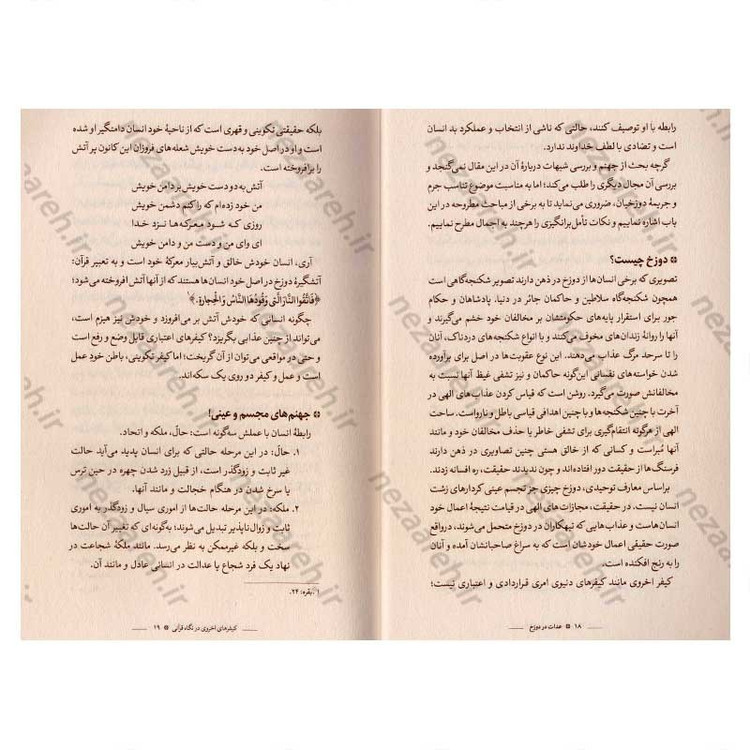 رابطه با او توصیف کنند، حالتی که ناشی از انتخاب و عملکرد بد انسان
است و تضادی با لطف خداوند ندارد.
گرچه بحث از جهنم و بررسی شبهات دربارهٔ آن در این مقال نمی‌گنجد و
بررسی آن مجال دیگری را طلب می‌کند؛ اما به مناسبت موضوع تناسب جرم
و جریمهٔ دوزخیان، ضروری می‌نماید تا به برخی از مباحث مطروحه در این
باب اشاره نماییم و نکات تأمل‌برانگیزی را هرچند به اجمال مطرح نماییم.
دوزخ چیست؟
تصویری که برخی انسان‌ها از دوزخ در ذهن دارند تصویر شکنجه‌گاهی است
همچون شکنجه‌گاه سلاطین و حاکمان جائر در دنیا. پادشاهان و حکام
جور برای استقرار پایه‌های حکومتشان بر مخالفان خود خشم می‌گیرند و
آنها را روانهٔ زندان‌های مخوف می‌کنند و با انواع شکنجه‌های دردناک، آنان
را تا سرحد مرگ عذاب می‌دهند. این نوع عقوبت‌ها در اصل برای برآورده
شدن خواسته‌های نفسانی این‌گونه حاکمان و نیز تشفی غیظ آنها نسبت به
مخالفانش صورت می‌گیرد. روشن است که قیاس کردن عذاب‌های الهی در
آخرت با چنین شکنجه‌ها و با چنین اهدافی قیاسی باطل و نارواست. ساحت
الهی از هرگونه انتقام‌گیری برای تشفی خاطر یا حذف مخالفان خود و مانند
آنها مُبراست و کسانی که از خالق هستی چنین تصاویری در ذهن دارند
فرسنگ‌ها از حقیقت دور افتاده‌اند و چون ندیدند حقیقت، ره افسانه زدند.
براساس معارف توحیدی، دوزخ چیزی جز تجسم عینی کردارهای زشت
انسان نیست. در حقیقت، مجازات‌های الهی در قیامت نتیجهٔ اعمال خود
انسان‌هاست و عذاب‌هایی که تبهکاران در دوزخ متحمل می‌شوند، درواقع
صورت حقیقی اعمال خودشان است که به سراغ صاحبانشان آمده و آنان
را به رنج افکنده است.
کیفر اخروی مانند کیفرهای دنیوی امری قراردادی و اعتباری نیست؛
۱۸ عدالت در دوزخ
بلکه حقیقتی تکوینی و قهری است که از ناحیهٔ خود انسان دامنگیر او شده
است و او در اصل خود به دست خویش شعله‌های فروزان این کانون پر آتش
را برافروخته است.
آتش به دو دست خویش بر دامن خویش
من خود زده‌ام که را کنم دشمن خویش
روزی که شود معرکه‌ها نزد خدا
ای وای من و دست من و دامن خویش
آری، انسان خودش خالق و آتش‌بیار معرکهٔ خود است و به تعبیر قرآن:
آتشگیرهٔ دوزخ در اصل خود انسان‌ها هستند که از آنها آتش افروخته می‌شود؛
﴿فَاتَّقُوا النَّارَ الَّتِي وَقُودُهَا النَّاسُ وَالْحِجَارَةُ﴾۱
چگونه انسانی که خودش آتش بر می‌افروزد و خودش نیز هیزم است،
می‌تواند از چنین عذابی بگریزد؟ کیفرهای اعتباری قابل وضع و رفع است
و حتی در مواقعی می‌توان از آن گریخت؛ اما کیفر تکوینی، باطن خود عمل
است و عمل و کیفر دو روی یک سکه‌اند.
جهنم‌های مجسم و عینی!
رابطهٔ انسان با عملش سه‌گونه است: حال، ملکه و اتحاد.
۱. حال: در این مرحله حالتی که برای انسان پدید می‌آید حالت
غیر ثابت و زودگذر است، از قبیل زرد شدن چهره در حین ترس
یا سرخ شدن در هنگام خجالت و مانند آنها.
۲. ملکه: در این مرحله حالت‌ها از اموری سیال و زودگذر به اموری
ثابت و زوال‌ناپذیر تبدیل می‌شوند؛ به‌گونه‌ای که تغییر آن حالت‌ها
سخت و بلکه غیرممکن به نظر می‌رسد. مانند ملکهٔ شجاعت در
نهاد یک فرد شجاع یا عدالت در انسانی عادل و مانند آن.
۱. بقره: ۲۴.
کیفرهای اخروی در نگاه قرآنی ۱۹
nezaareh.ir